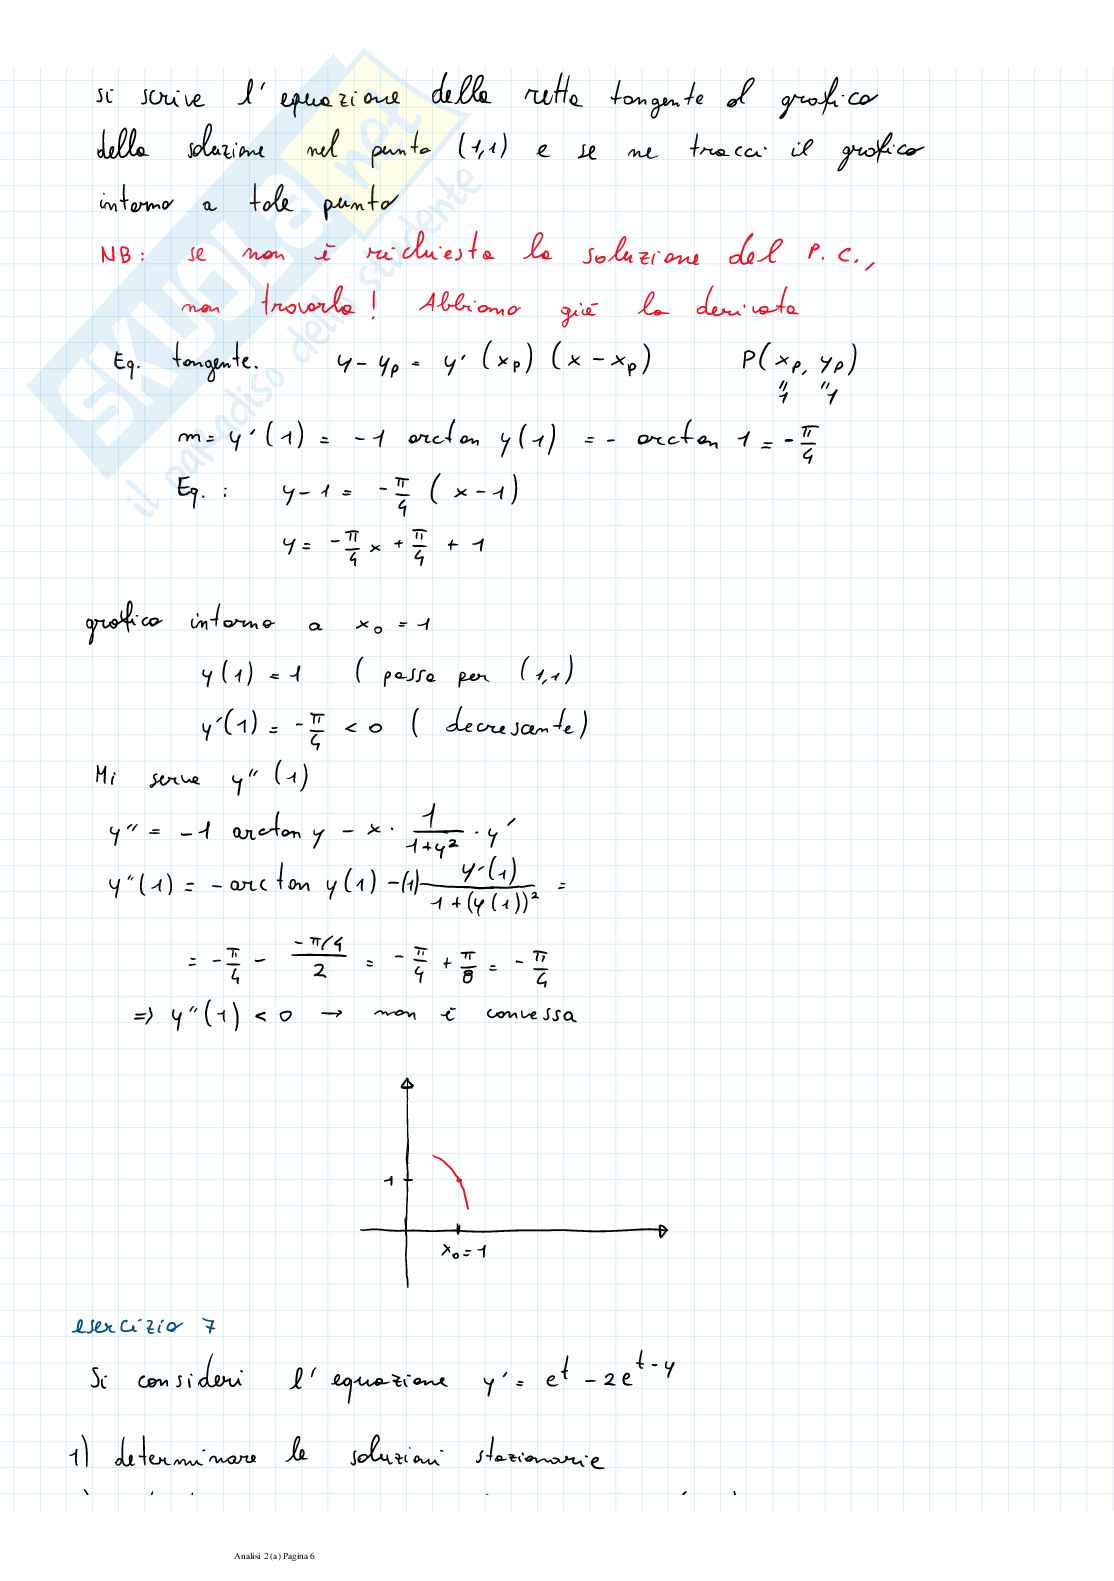 si scrive l'equazione della retta tangente al grafico
della soluzione nel punto (1,1) e se ne tracci il grafico
intorno a tale punto
NB: se non è richiesta la soluzione del P.C.,
non trovarla! Abbiamo già la derivata
Eq. tangente. y - yₚ = y'(xₚ)(x - xₚ) P(xₚ, yₚ)
" 1 " 1
m = y'(1) = -1 arctan y(1) = - arctan 1 = - π/4
Eq. : y - 1 = - π/4 (x - 1)
y = - π/4 x + π/4 + 1
grafico intorno a x₀ = 1
y(1) = 1 ( passa per (1,1)
y'(1) = - π/4 < 0 ( decresante)
Mi serve y"(1)
y" = -1 arctan y - x · 1/(1+y²) · y'
y"(1) = - arctan y(1) - (1) y'(1)/(1+(y(1))²) =
= - π/4 - (-π/4)/2 = - π/4 + π/8 = - π/4
=> y"(1) < 0 → non è convessa
1
x₀ = 1
esercizio 7
Si consideri l'equazione y' = eᵗ - 2eᵗ⁻ʸ
1) determinare le soluzioni stazionarie
Analisi 2 (a) Pagina 6
SKUOLA.net
il paradiso dello studente